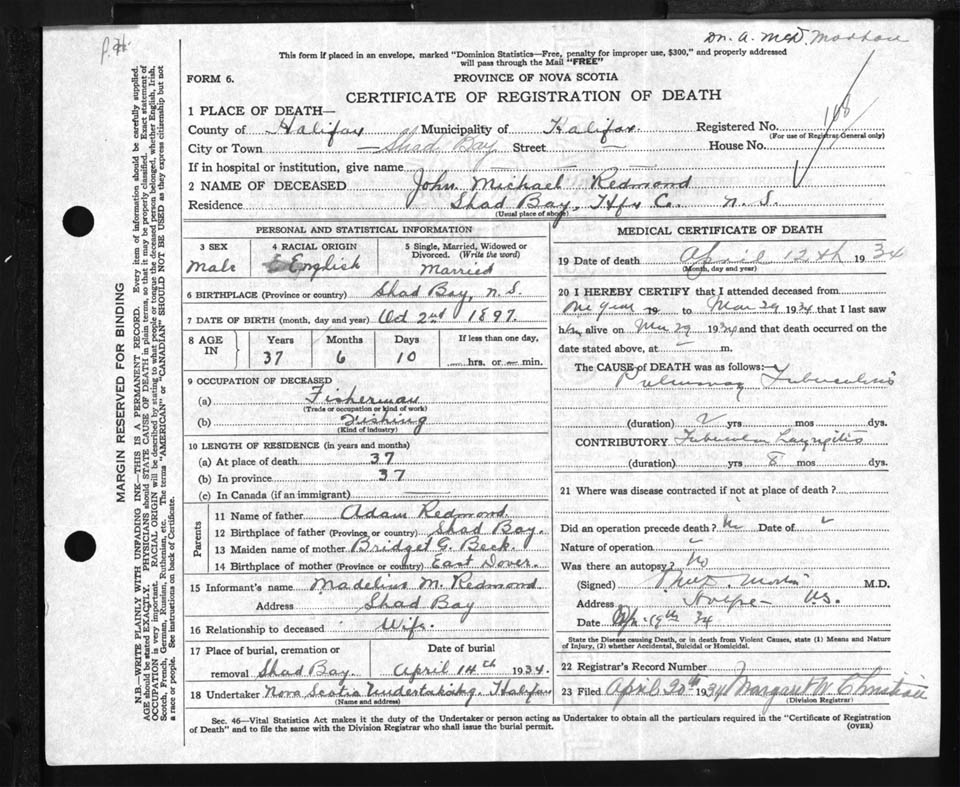 Dr. A. McD. Morton
P. 4
This form if placed in an envelope, marked "Dominion Statistics—Free, penalty for improper use, $300," and properly addressed
will pass through the Mail "FREE"
FORM 6.
PROVINCE OF NOVA SCOTIA
CERTIFICATE OF REGISTRATION OF DEATH
1 PLACE OF DEATH—
County of Halifax Municipality of Halifax. Registered No.
(For use of Registrar General only)
City or Town Shad Bay Street — House No.
If in hospital or institution, give name —
2 NAME OF DECEASED John Michael Redmond
Residence Shad Bay, Hfx Co. N. S.
(Usual place of abode)
PERSONAL AND STATISTICAL INFORMATION
3 SEX
Male
4 RACIAL ORIGIN
English
5 Single, Married, Widowed or
Divorced. (Write the word)
Married
6 BIRTHPLACE (Province or country) Shad Bay, N. S.
7 DATE OF BIRTH (month, day and year) Oct 2nd 1897.
8 AGE
IN
Years
37
Months
6
Days
10
If less than one day,
hrs. or — min.
9 OCCUPATION OF DECEASED
(a) Fisherman
(Trade or occupation or kind of work)
(b) Fishing
(Kind of industry)
10 LENGTH OF RESIDENCE (in years and months)
(a) At place of death 37
(b) In province 37
(c) In Canada (if an immigrant) —
Parents
11 Name of father Adam Redmond
12 Birthplace of father (Province or country) Shad Bay.
13 Maiden name of mother Bridget G. Beck.
14 Birthplace of mother (Province or country) East Dover.
15 Informant's name Madeline M. Redmond
Address Shad Bay
16 Relationship to deceased Wife.
17 Place of burial, cremation or
removal Shad Bay.
Date of burial
April 14th 1934.
18 Undertaker Nova Scotia Undertaking, Halifax
(Name and address)
MEDICAL CERTIFICATE OF DEATH
19 Date of death April 12th 1934
(Month, day and year)
20 I HEREBY CERTIFY that I attended deceased from
One year 19 to Mar 29 1934 that I last saw
him alive on Mar 29 1934 and that death occurred on the
date stated above, at — m.
The CAUSE of DEATH was as follows:—
Pulmonary Tuberculosis
(duration) 2 yrs mos dys.
CONTRIBUTORY Tubercular Laryngitis
(duration) yrs 8 mos dys.
21 Where was disease contracted if not at place of death?
Did an operation precede death? No Date of
Nature of operation
Was there an autopsy? No
(Signed) Morton M.D.
Address N.S.
Date Apr. 19th 34
State the Disease causing Death, or in death from Violent Causes, state (1) Means and Nature
of Injury, (2) whether Accidental, Suicidal or Homicidal.
22 Registrar's Record Number
23 Filed April 20th 1934 Margaret W. Christie
(Division Registrar)
Sec. 46—Vital Statistics Act makes it the duty of the Undertaker or person acting as Undertaker to obtain all the particulars required in the "Certificate of Registration
of Death" and to file the same with the Division Registrar who shall issue the burial permit.
(OVER)
MARGIN RESERVED FOR BINDING
N.B.—WRITE PLAINLY WITH UNFADING INK—THIS IS A PERMANENT RECORD. Every item of information should be carefully supplied.
AGE should be stated EXACTLY. PHYSICIANS should STATE CAUSE OF DEATH in plain terms, so that it may be properly classified. Exact statement of
OCCUPATION is very important. RACIAL ORIGIN will be described by stating to what people or tongue the deceased person belonged, whether English, Irish,
Scotch, French, German, Russian, Ruthenian, etc. The terms "AMERICAN" or "CANADIAN" SHOULD NOT BE USED as they express citizenship but not
a race or people. See instructions on back of Certificate.